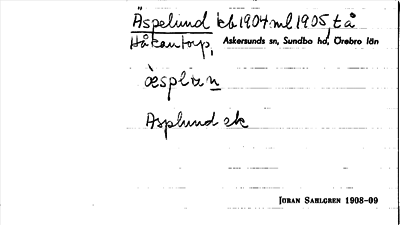 Äspelund kb 1904 ml 1905, t å
Håkantorp, Askersunds sn, Sundbo hd, Örebro län
Asplund ek
JÖRAN SAHLGREN 1908-09